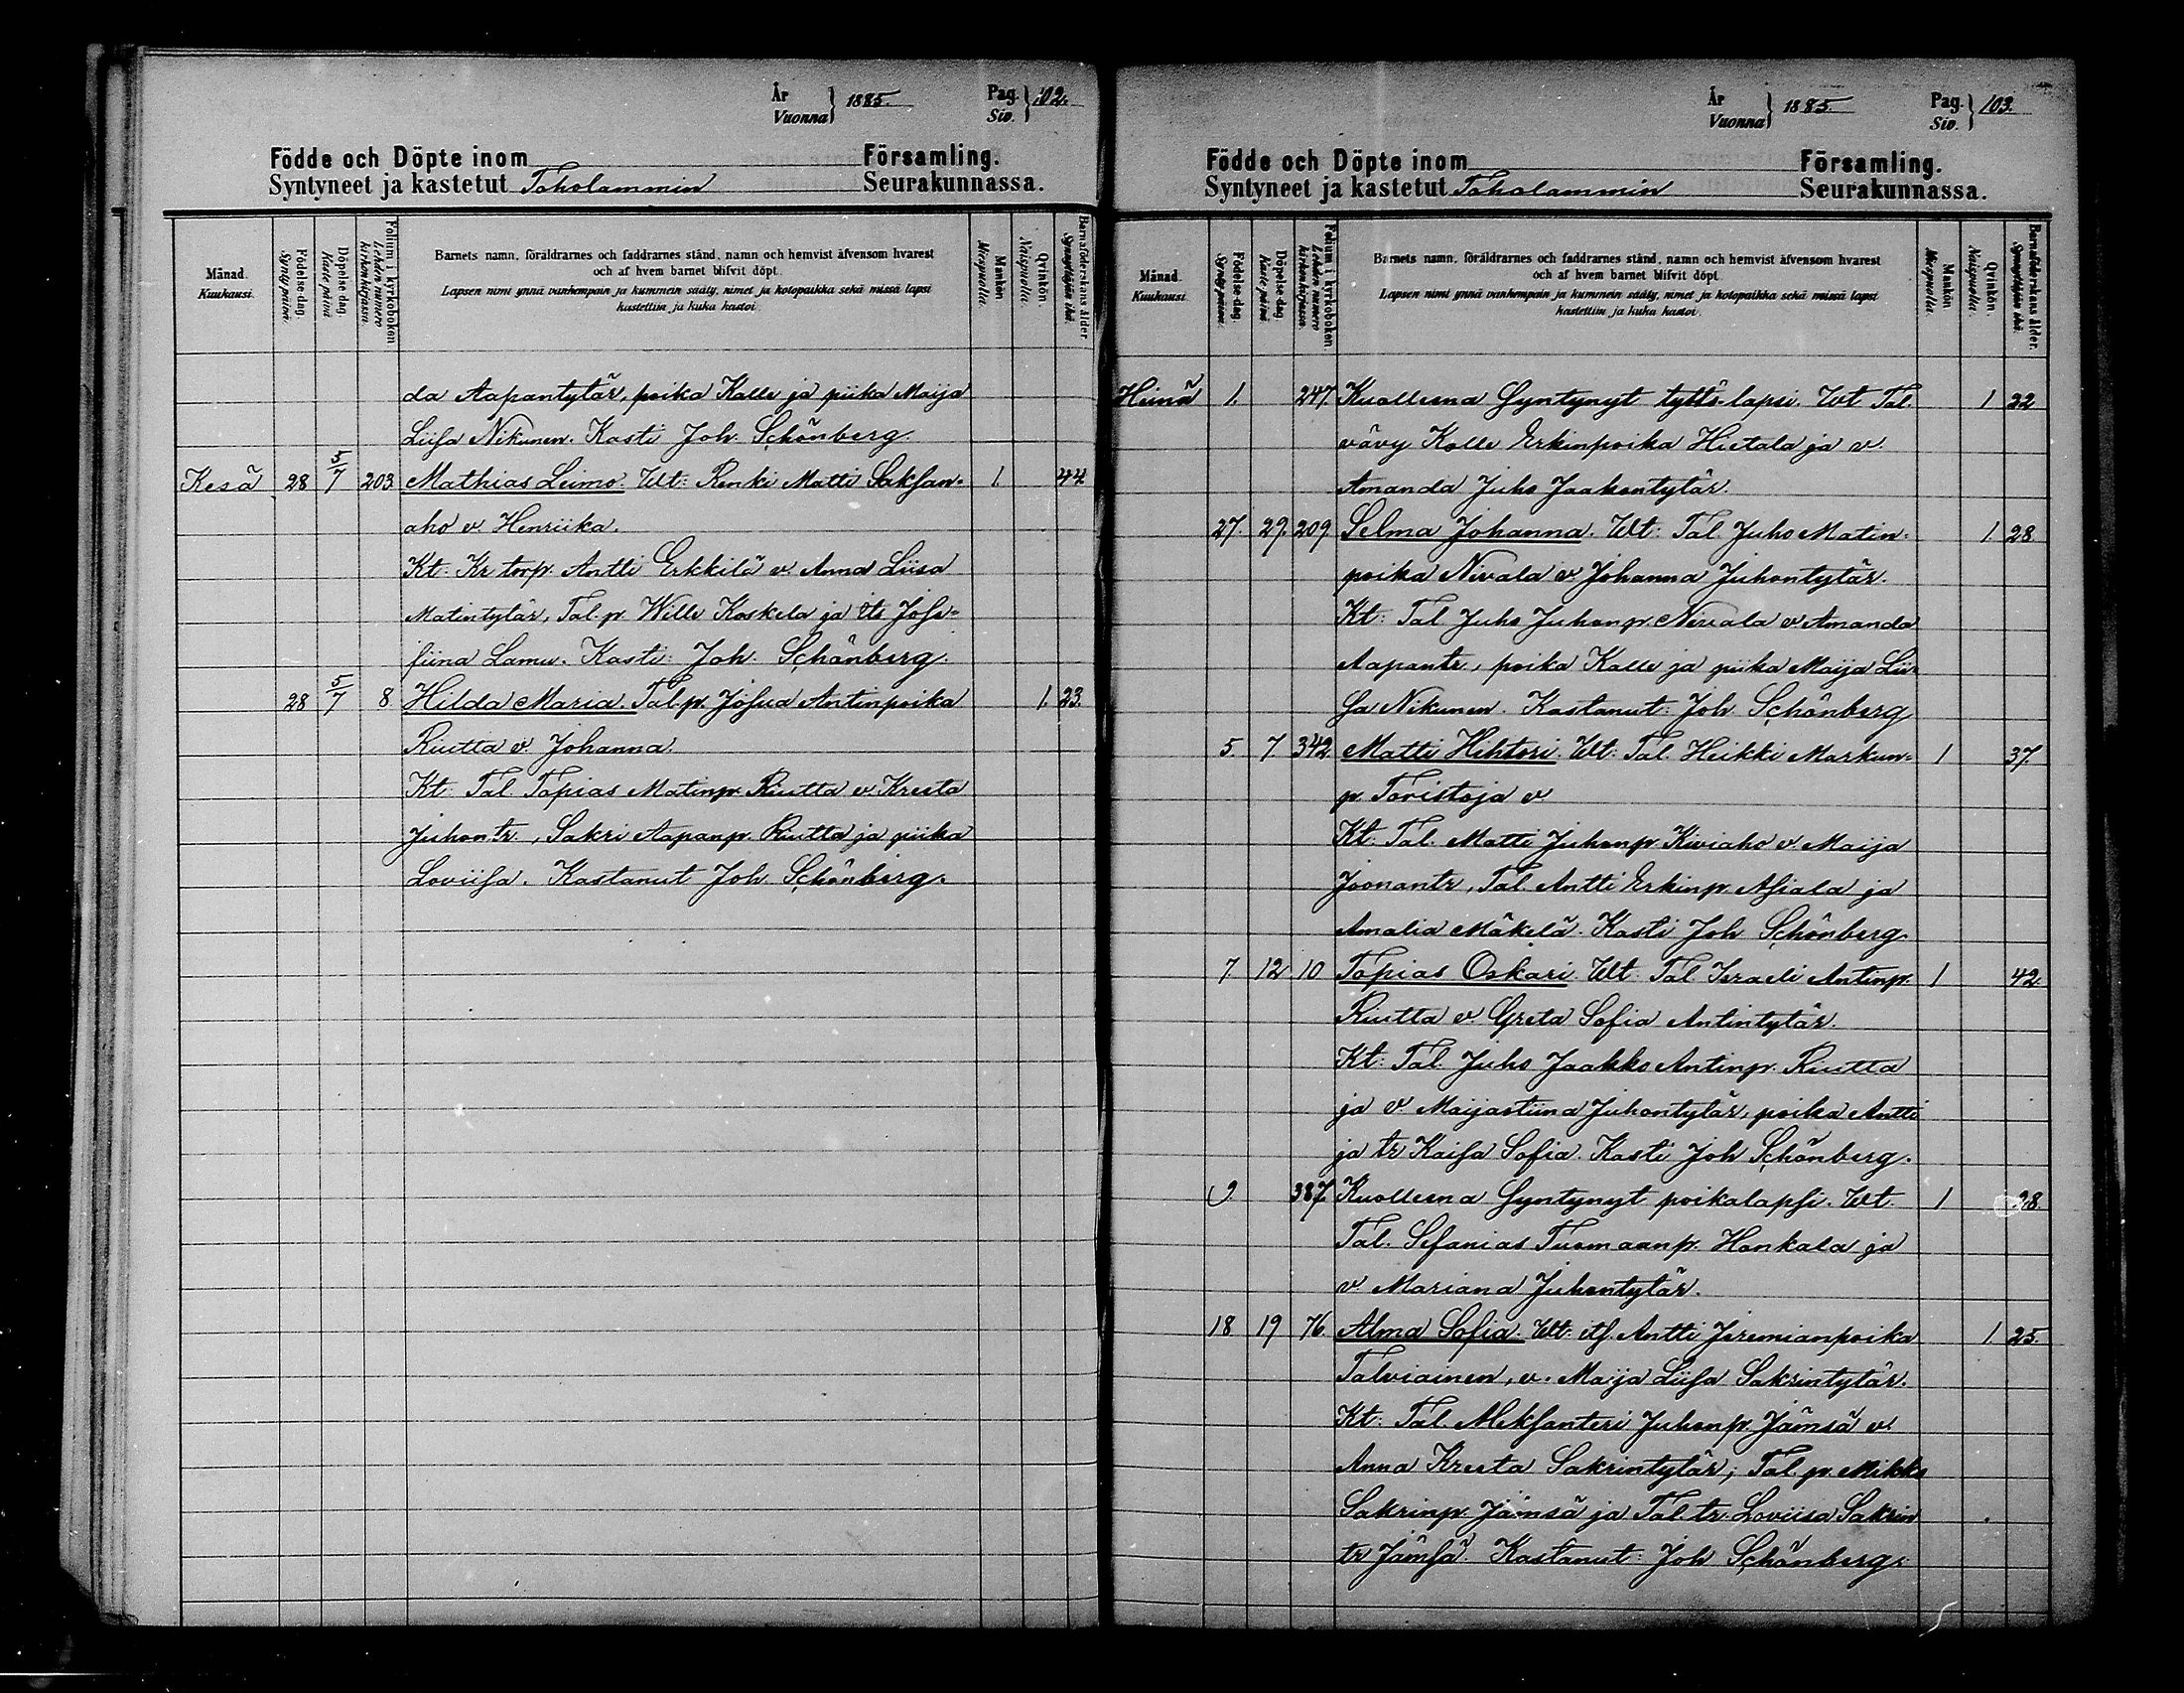 År
Vuonna } 1885.
Pag.
Siv. } 102.
Födde och Döpte inom Församling.
Syntyneet ja kastetut Toholammin Seurakunnassa.
Månad.
Kuukausi.
Födelse-dag.
Synty päivä.
Döpelse-dag.
Kaste päivä
Folium i kyrkoboken
Lehden numero
kirkonkirjassa.
Barnets namn, föräldrarnes och faddrarnes stånd, namn och hemvist äfvensom hvarest
och af hvem barnet blifvit döpt.
Lapsen nimi ynnä vanhempain ja kummein sääty, nimet ja kotopaikka sekä missä lapsi
kastettiin ja kuka kastoi.
Mankön
Miespuolia.
Qvinkön.
Naispuolia.
Barnaföderskans ålder
Synnyttäjän ikä.
da Aapantytär, poika Kalle ja piika Maija
Liisa Nikunen. Kasti Joh. Schönberg.
Kesä 28 5/7 203 Mathias Leimo. Wt: Renki Matti Saksan- 1. 44
aho v. Henriika.
Kt: Kr torp. Antti Erkkilä v. Anna Liisa
Matintytär, Tal. p. Wille Koskela ja its Jose-
fiina Lamu. Kasti: Joh. Schönberg.
28 5/7 8. Hilda Maria. Tal. p. Josua Antinpoika 1. 23.
Riutta v. Johanna.
Kt: Tal. Topias Matinp. Riutta v. Kreeta
Juhontr., Sakri Aapanp. Riutta ja piika
Loviisa. Kastanut Joh. Schönberg.
År
Vuonna } 1885.
Pag.
Siv. } 103.
Födde och Döpte inom Församling.
Syntyneet ja kastetut Toholammin Seurakunnassa.
Månad.
Kuukausi.
Födelse-dag.
Synty päivä.
Döpelse-dag.
Kaste päivä
Folium i kyrkoboken.
Lehden numero
kirkonkirjassa.
Barnets namn, föräldrarnes och faddrarnes stånd, namn och hemvist äfvensom hvarest
och af hvem barnet blifvit döpt.
Lapsen nimi ynnä vanhempain ja kummein sääty, nimet ja kotopaikka sekä missä lapsi
kastettiin ja kuka kastoi.
Mankön
Miespuolia.
Qvinkön.
Naispuolia.
Barnaföderskans ålder.
Synnyttäjän ikä.
Heinä 1. 247 Kuolleena Syntynyt tyttö-lapsi. Wt Tal. 1 22
vävy Kalle Erkinpoika Hietala ja v.
Amanda Juho Jaakontytär.
27. 29. 209. Selma Johanna. Wt: Tal. Juho Matin- 1 28
poika Nivala v. Johanna Juhontytär.
Kt: Tal Juho Juhonp. Nivala v Amanda
Aapantr., poika Kalle ja piika Maija Lii-
sa Nikunen. Kastanut: Joh. Schönberg
5. 7 342 Matti Hihtori. Wt: Tal. Heikki Markun- 1 37.
p. Toristoja v
Kt: Tal. Matti Juhonp. Kiviaho v. Maija
Joonantr, Tal. Antti Erkinp. Asiala ja
Amalia Mäkelä. Kasti Joh Schönberg.
7 12 10 Topias Oskari. Wt: Tal Israeli Antinp. 1 42.
Riutta v. Greta Sofia Antintytär.
Kt: Tal. Juho Jaakko Antinp. Riutta
ja v. Maijastiina Juhontytär, poika Antti
ja tr Kaisa Sofia. Kasti Joh Schönberg.
9 387. Kuolleena Syntynyt poikalapsi. Wt. 1 28.
Tal. Sefanias Tuomaanp. Honkala ja
v. Mariana Juhontytär.
18 19 76. Alma Sofia. Wt: Antti Jeremianpoika 1 25.
Talviainen, v. Maija Liisa Sakrintytär.
Kt: Tal. Aleksanteri Juhonp. Jämsä v.
Anna Kreeta Sakrintytär; Tal. p. Mikko
Sakrinp. Jämsä ja Tal. tr. Loviisa Sakrin
tr Jämsä. Kastanut: Joh Schönberg.